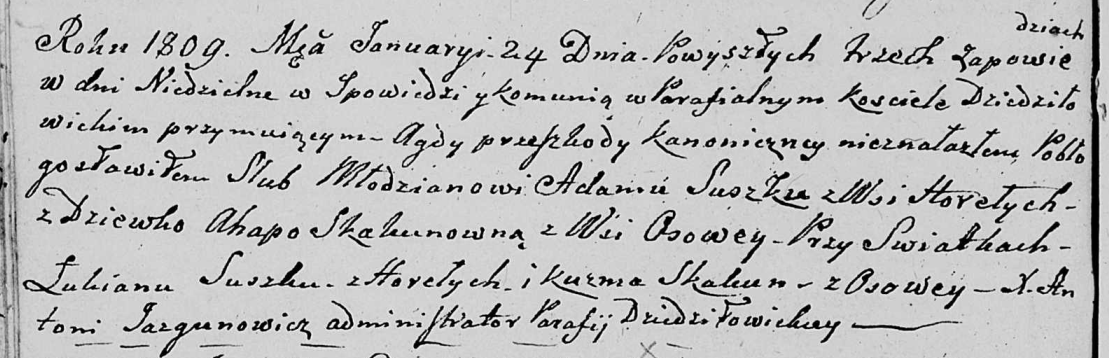 dziach
Roku 1809. Mcă Januaryi 24 Dnia. Powyszłych trzech Zapowie
w dni Niedzielne w Spowiedzi y komunią w Parafialnym Kosciele Dziedziło
wickim przymuiącym - Agdy przeszkody kanoniczney nieznalazłem, Pobło
gosławiłem Slub Młodzianowi Adamu Suszku z Wsi Horełych -
z Dziewko Ahapo Skakunowną z Wsi Osowey - Przy Swiatkach -
Łukianu Suszku - z Horełych - i Kuzma Skakun - z Osowey - X. An
toni Jazgunowicz administrator Parafij Dziedziłowickiey